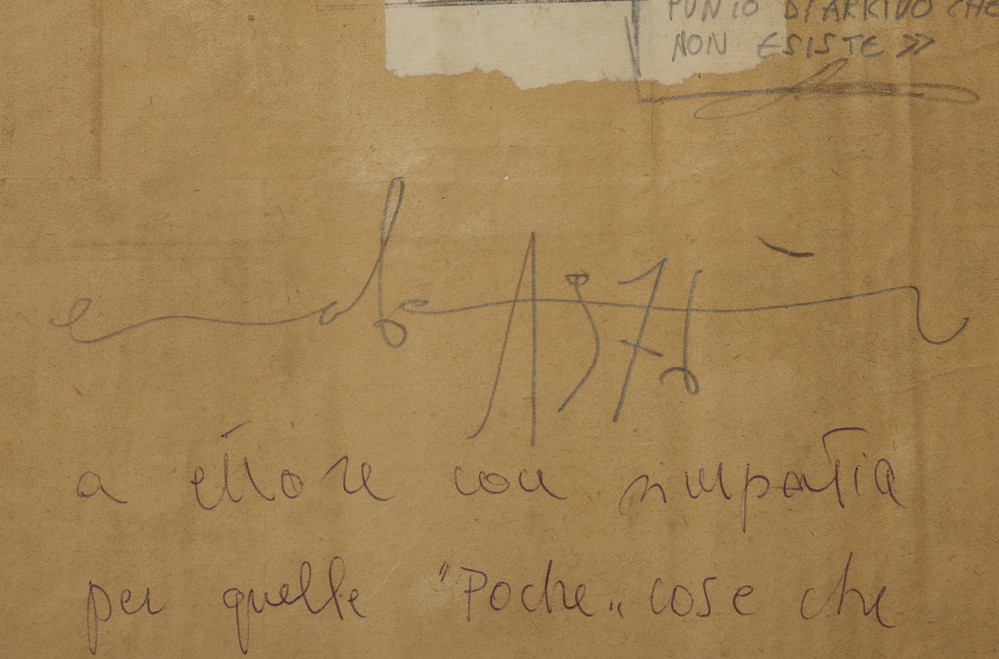 PUNTO D'ARRIVO CHE
NON ESISTE »
1975
a ettore con simpatia
per quelle "Poche„ cose che